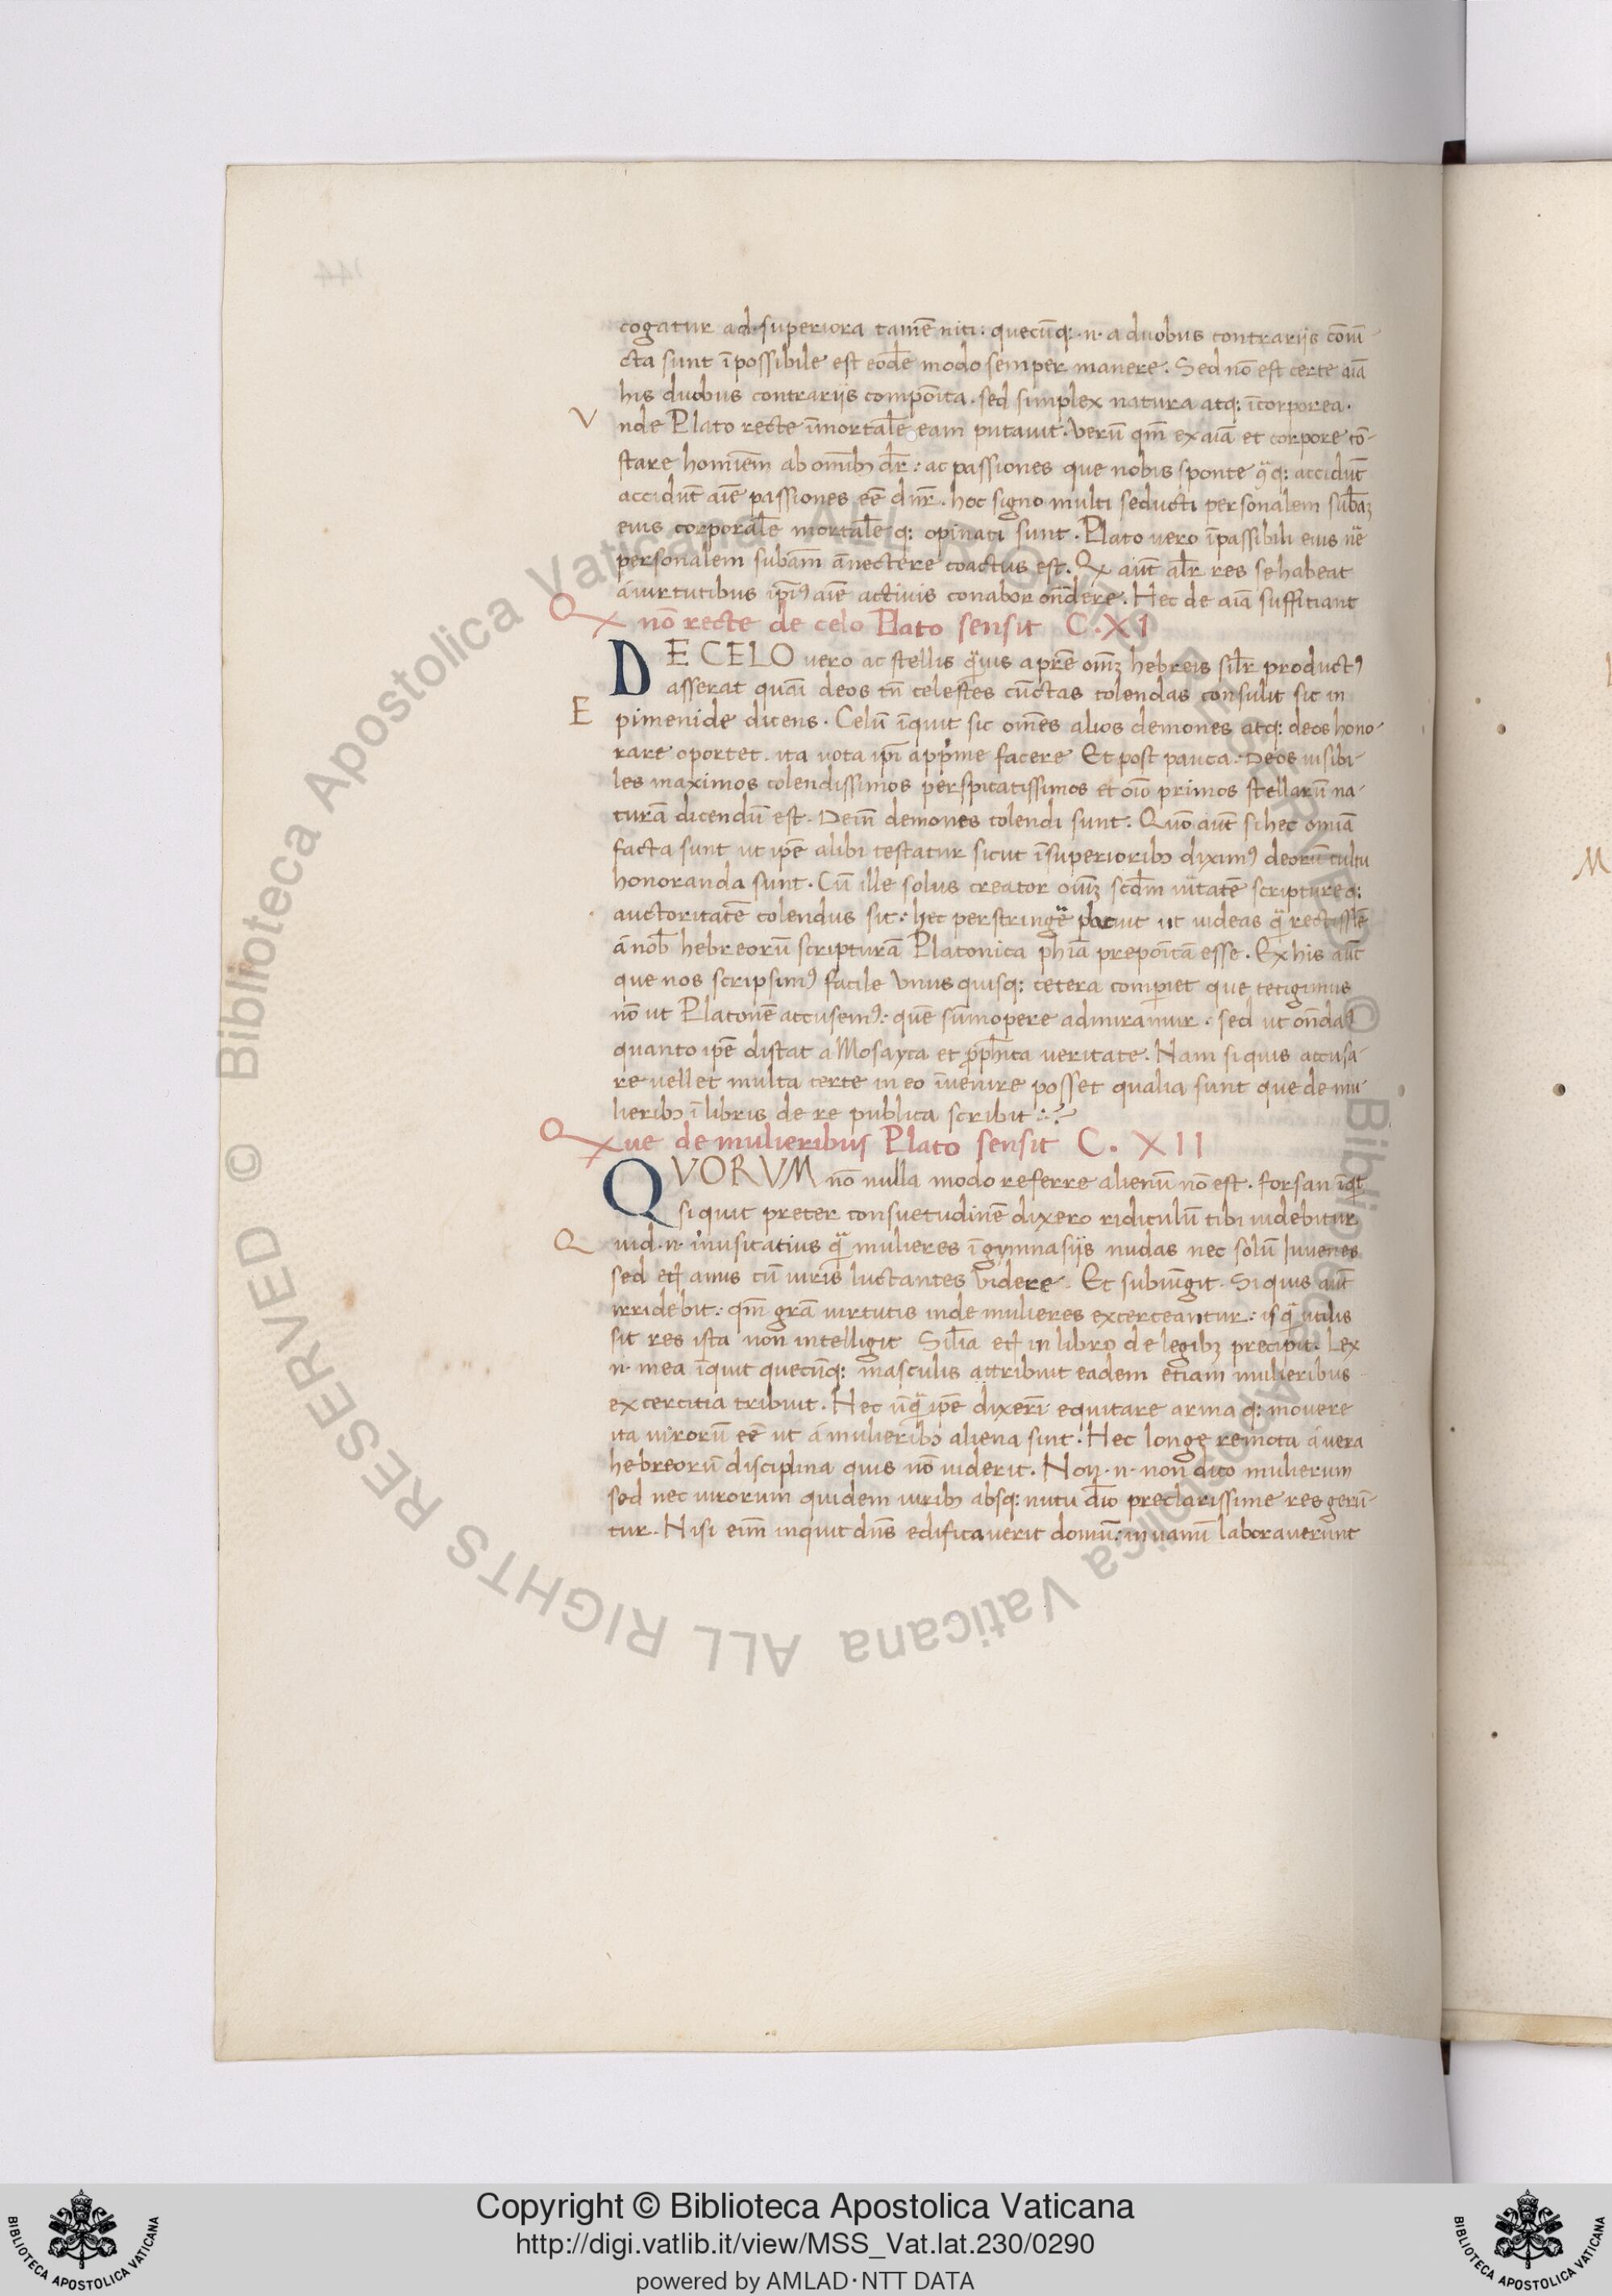 cogatur ad superiora tamē niti: quecūq: .n. a duobus contrarijs cōiū-
cta sunt īpossibile est eodē modo semper manere. Sed nō est certe aīa
his duobus contrarijs compoīta. sed simplex natura atq: īcorporea.
Vnde Plato recte īmortalē eam putauit. Verū qm̄ ex aīa et corpore cō-
stare homīem ab omībꝫ dr̄: ac passiones que nobis sponte accidūt
accidūt aīe passiones eē dnr̄. hoc signo multi seducti personalem
eius corporalē mortalē q: opinati sunt. Plato uero īpassibili eius
personalem subam̄ ānectere coactus est. Qx aūt alr̄ res se habeat
a uirtutibus ip̄iꝰ aīe actiuis conabor on̄dere. Hec de aīa suffitiant
Qx nō recte de celo Plato sensit C.XI
DE CELO uero ac stellis quis a omīꝫ hebreis silr̄ productꝰ
asserat deos tn̄ celestes cūctas colendas consulit sic in
Epimenide dicens. Celū īquit sic omēs alios demones atq: deos hono-
rare oportet. ita uota ip̄i facere Et post pauca. Deos uisibi-
les maximos colendissimos perspicatissimos et oīo primos stellarū na-
turā dicendū est. Deīn demones colendi sunt. Quō aūt si hec omīa
facta sunt ut ip̄e alibi testatur sicut īsuperioribꝫ diximꝰ deorū cultu
honoranda sunt. Cū ille solus creator omīꝫ scd̄m uītatē scriptureq:
auctoritatē colendus sit: hec perstringē placuit ut uideas rectissīē
a nob̄ hebreorū scripturā Platonica phīa prepoītā esse. Ex his aūt
que nos scripsimꝰ facile Vnus quisq: cetera comperiet que tetigimus
nō ut Platonē accusemꝰ: quē sūmopere admiramur. sed ut on̄da
quanto ip̄e distat a Mosayca et pphīca veritate. Nam si quis accusa-
re vellet multa certe in eo īuenire posset qualia sunt que de mu-
lieribꝫ ī libris de re publica scribit
Qxue de mulieribus Plato sensit C. XII
QVORVM nō nulla modo referre alienū nō est. forsan īqt
si quit preter consuetudinē dixero ridiculū tibi uidebitur
Quid .n. inusitatius quā mulieres ī gymnasijs nudas nec solū Iuuenes
sed etꝫ anus cū uiris luctantes Videre. Et subiūgit. Si quis aūt
irridebit: qm̄ grā uirtutis inde mulieres excerceantur: is quā utilis
sit res ista non intelligit Silīa etꝫ in libro de legibꝫ precipit. Lex
.n. mea īquit quecūq: masculis attribuit eadem etiam mulieribus
excercitia tribuit. Hec ip̄e dixerī equitare arma q: mouere
ita uirorū eē ut a mulieribꝫ aliena sint. Hec longe remota a uera
hebreorū disciplina quis nō uiderit. Non .n. non dico mulierum
sed nec uirorum quidem uiribꝫ absq: nutu dīo preclarissime res gerū-
tur. Nisi eīm inquit dn̄s edificauerit domū: in uanū laborauerunt
M
144
© Biblioteca Apostolica Vaticana ALL RIGHTS RESERVED
© Biblioteca Apostolica Vaticana ALL RIGHTS RESERVED
Copyright © Biblioteca Apostolica Vaticana
http://digi.vatlib.it/view/MSS_Vat.lat.230/0290
powered by AMLAD·NTT DATA
BIBLIOTECA APOSTOLICA VATICANA
BIBLIOTECA APOSTOLICA VATICANA